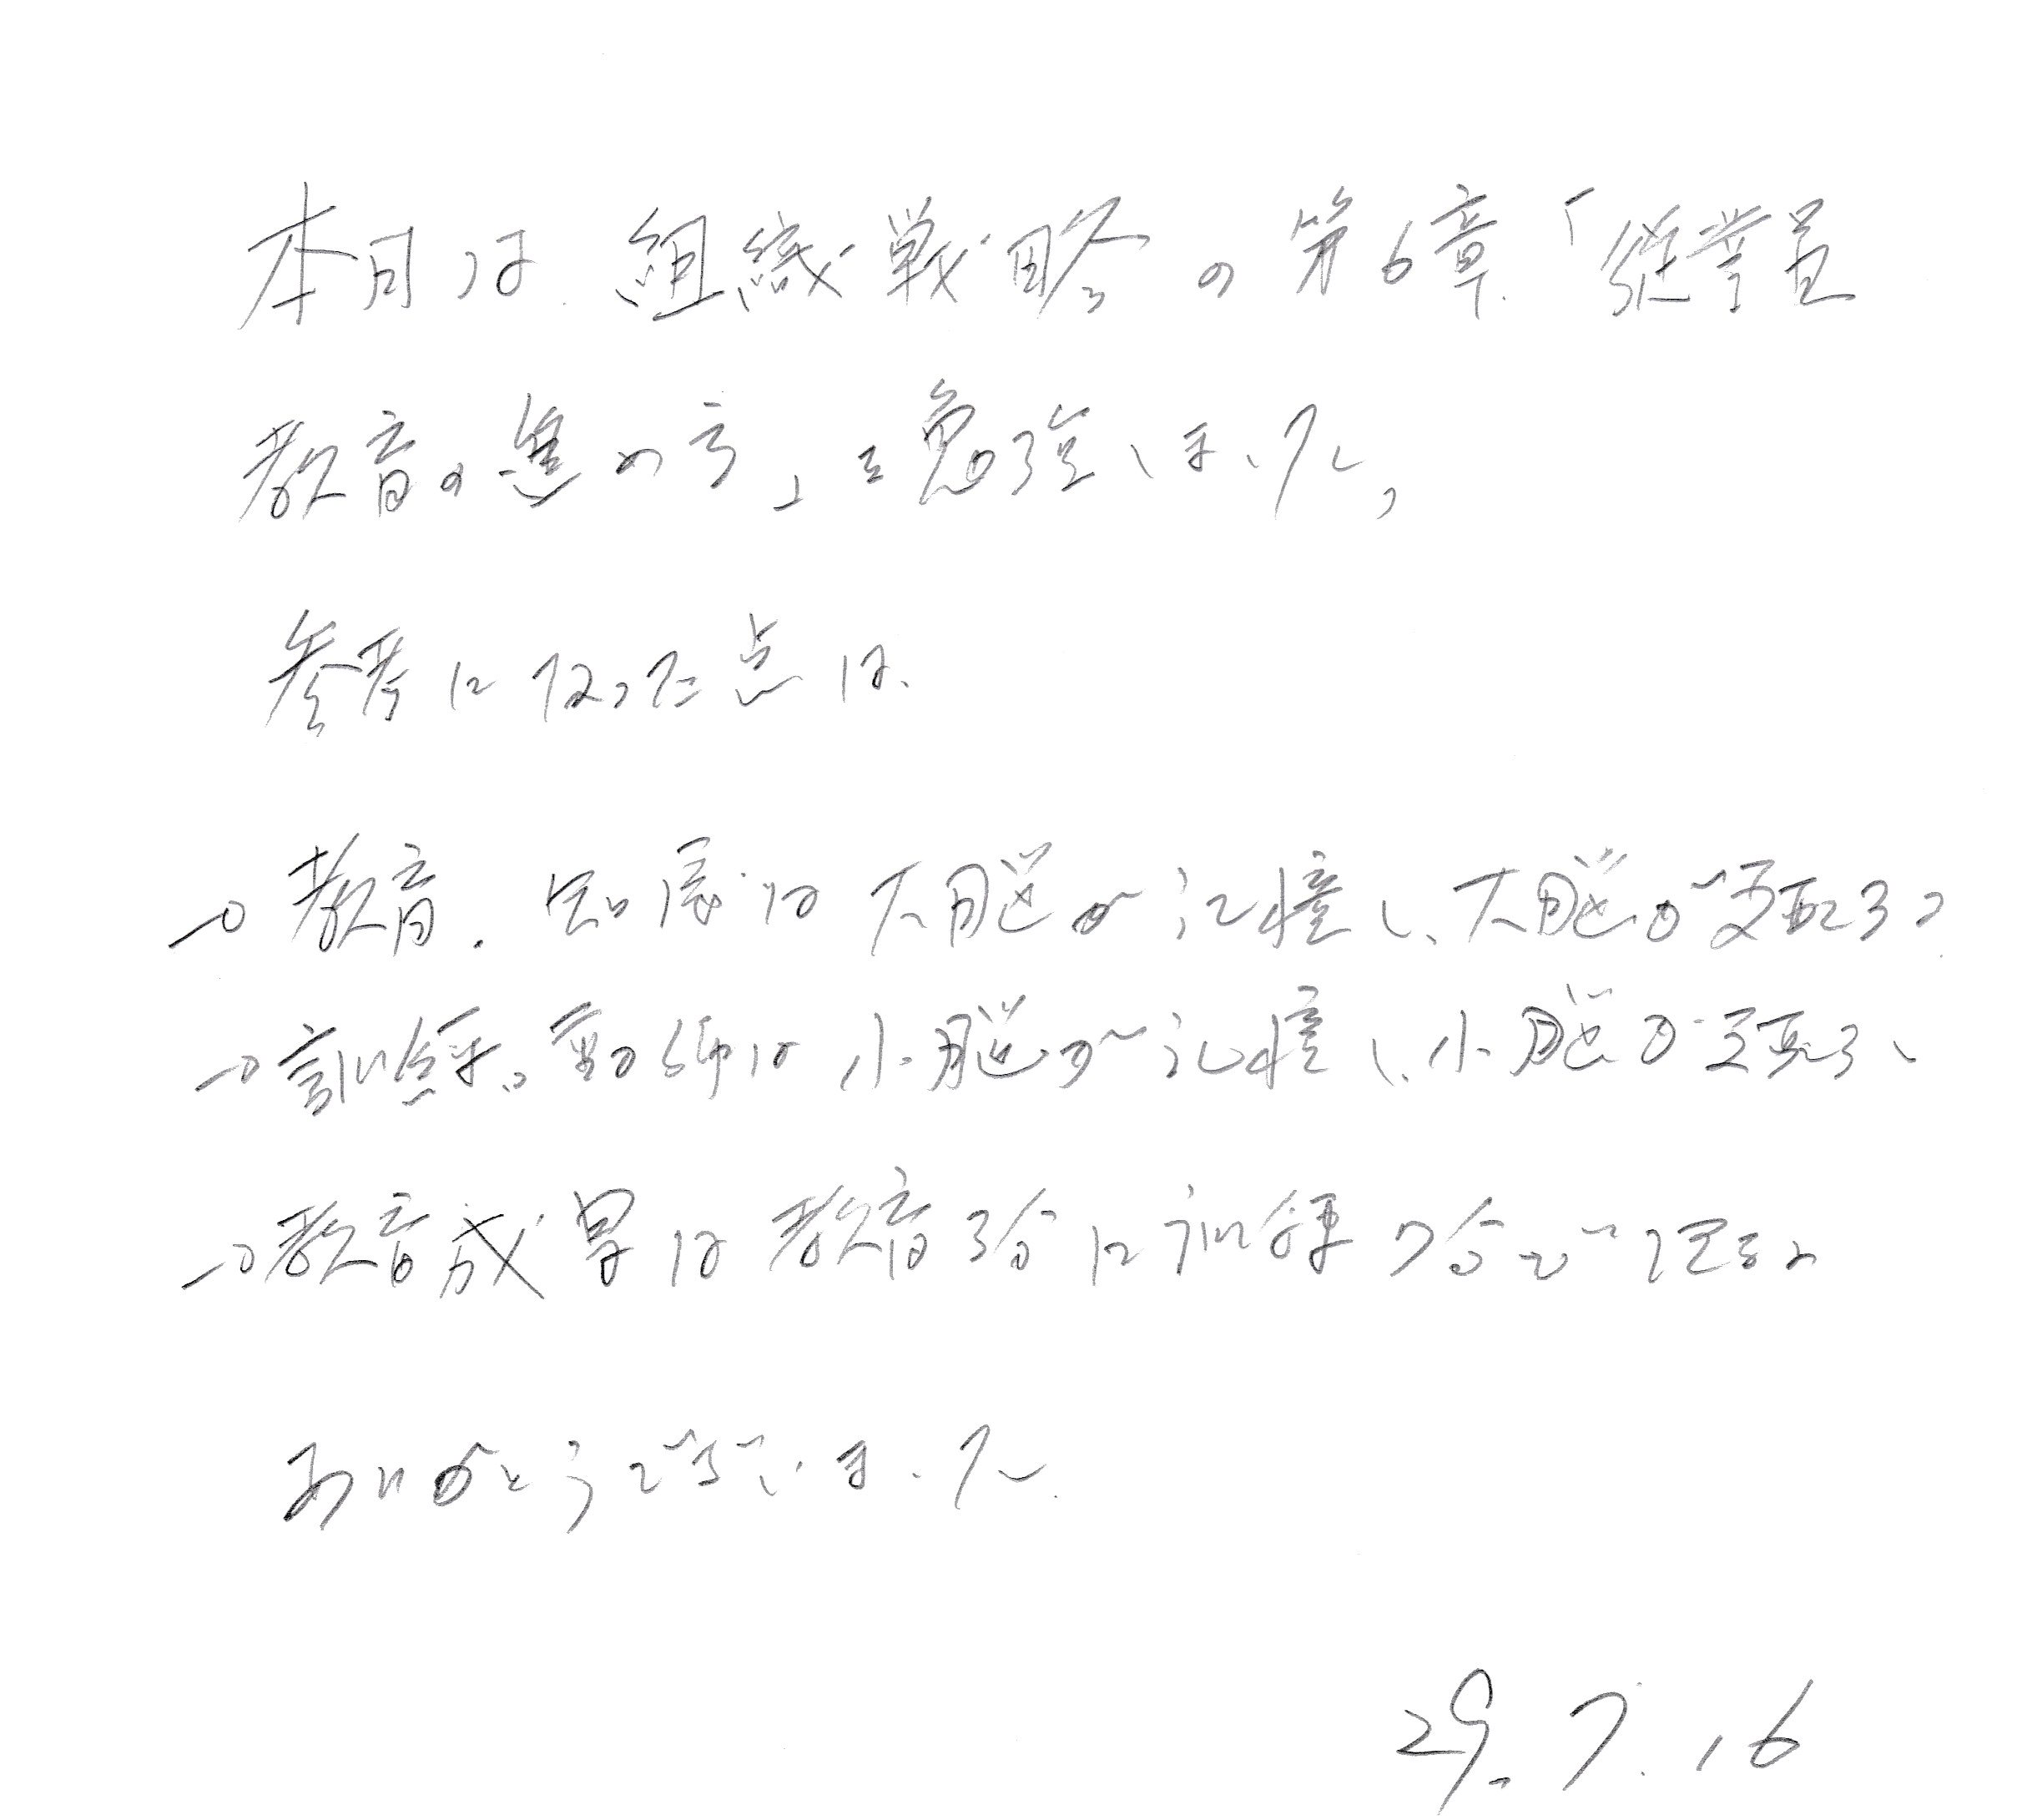 本日は、組織戦略の第6章「従業員
教育の進め方」を勉強しました。
参考になった点は、
→教育・知識は大脳が記憶し、大脳が支配する
→訓練・動作は小脳が記憶し、小脳が支配する
→教育成果は教育3分に訓練7分で決まる
ありがとうございました。
29.7.16